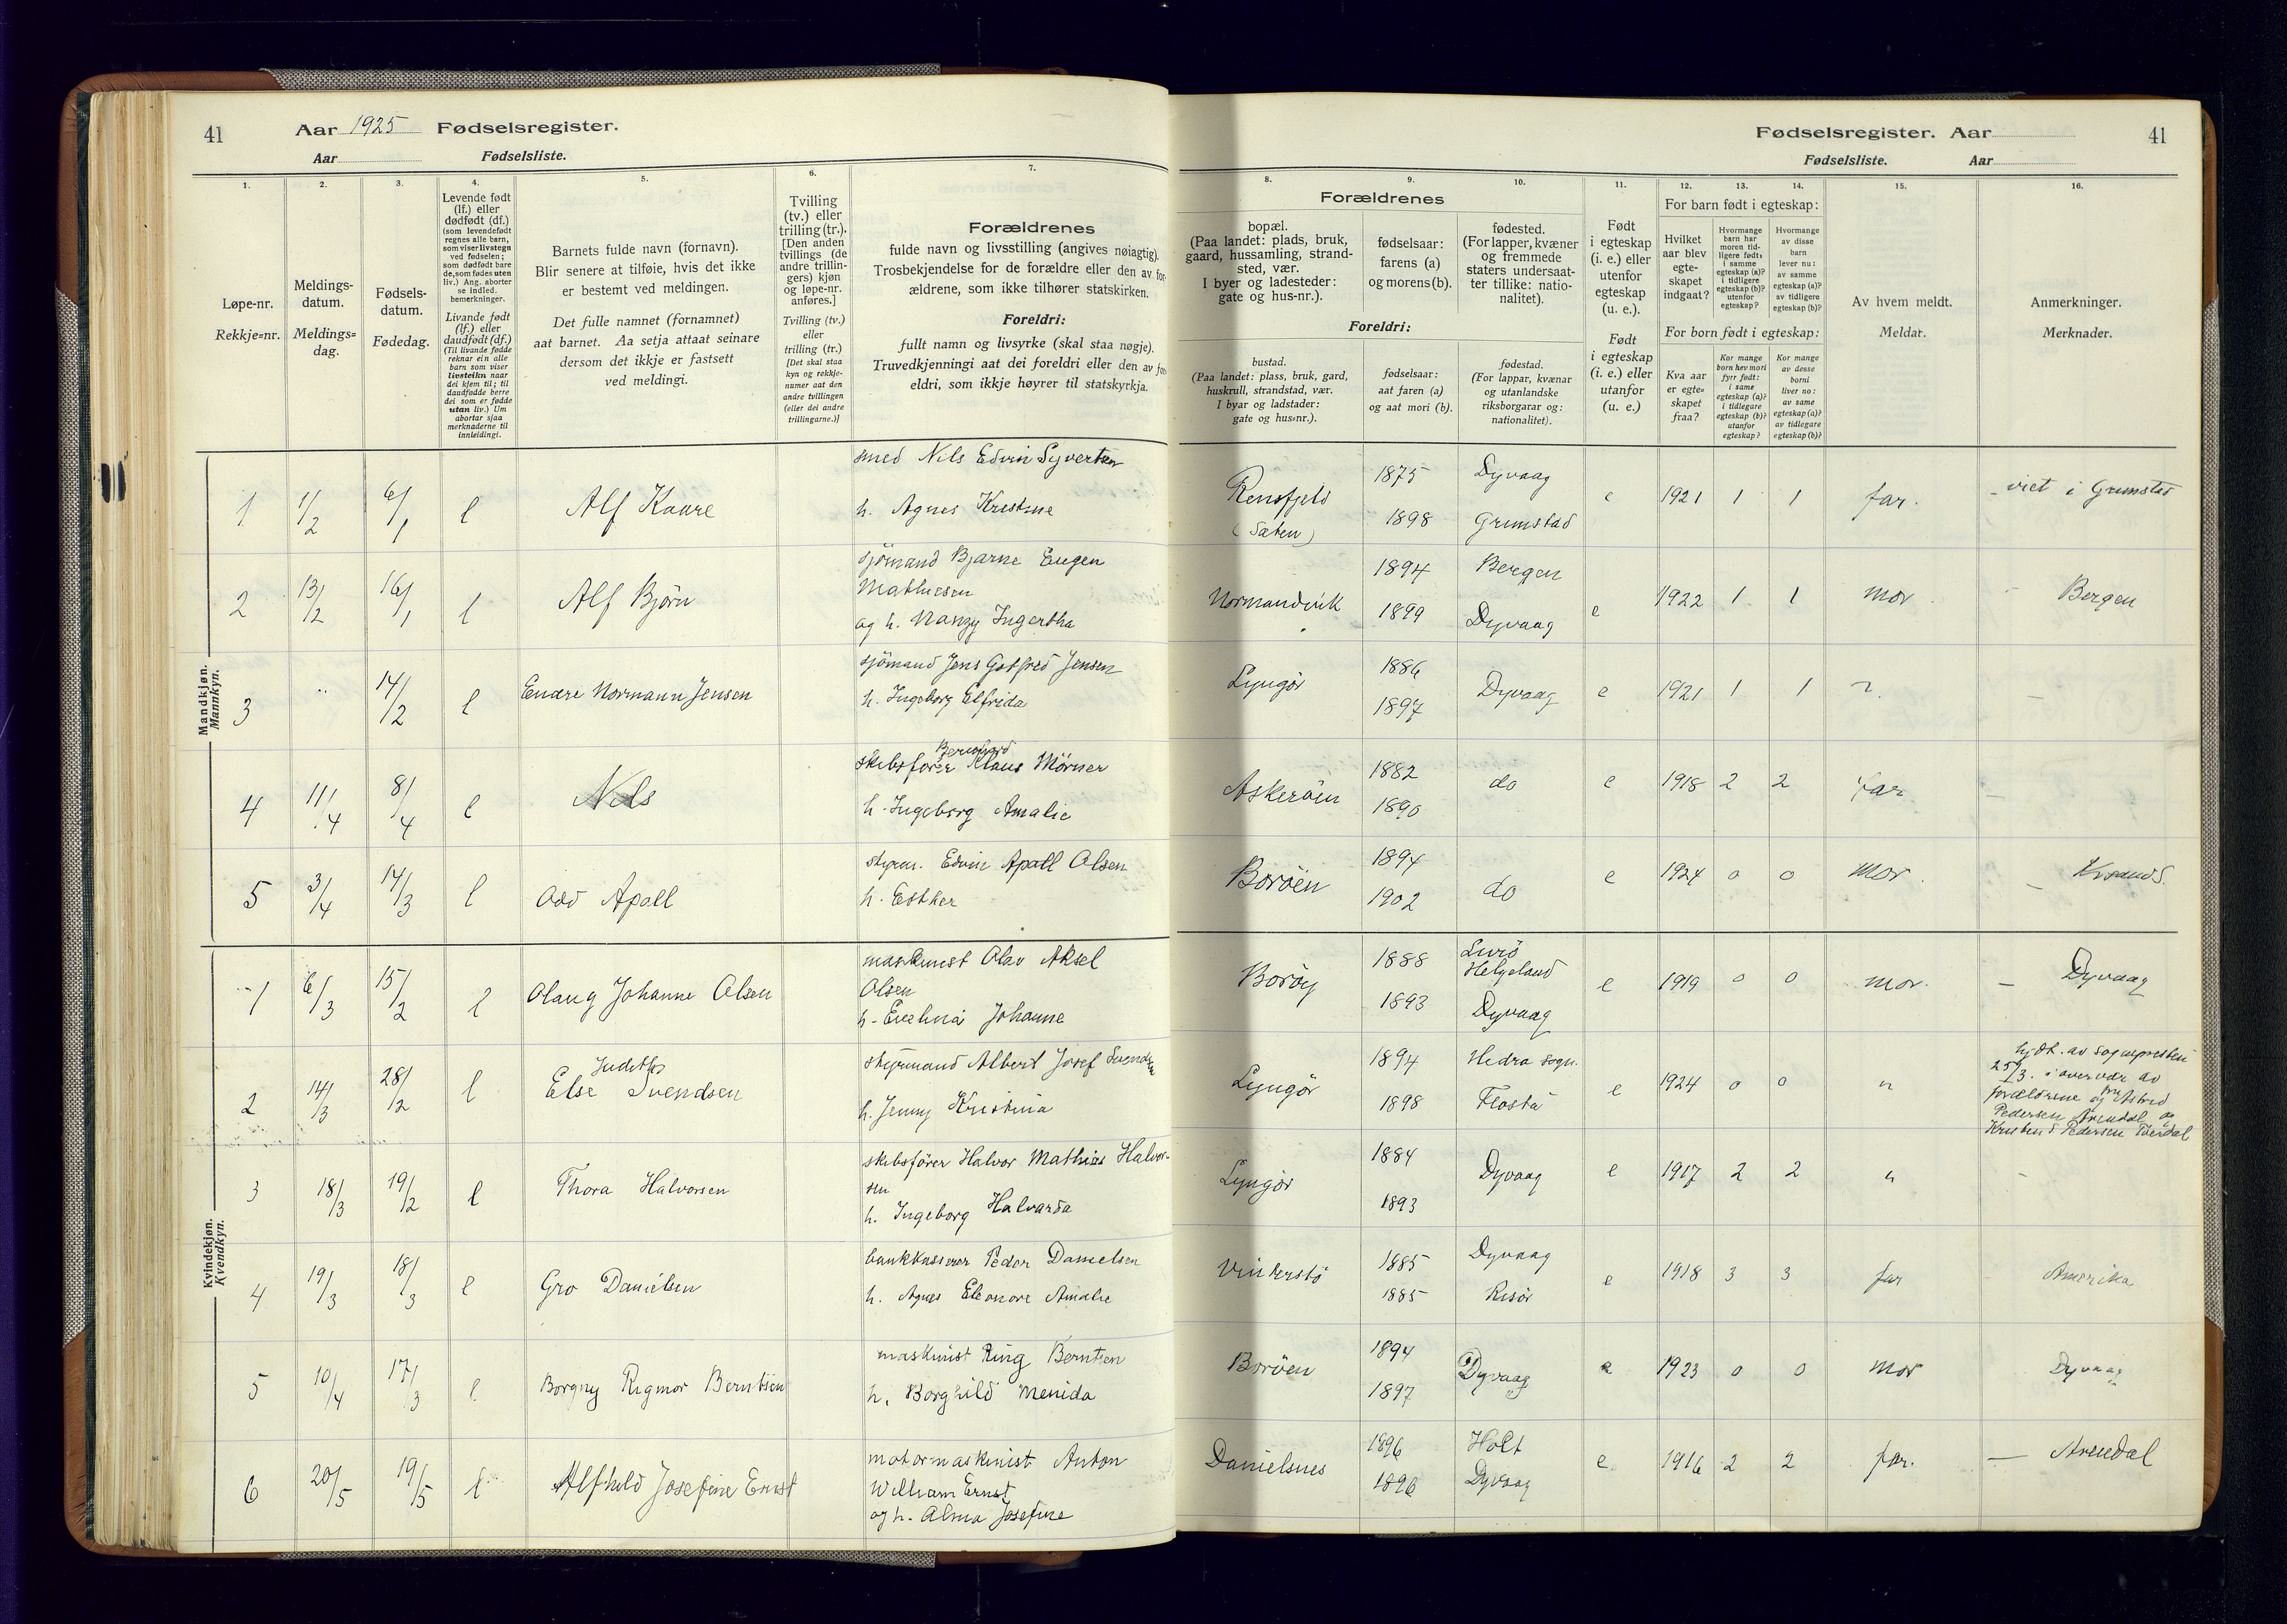 41
Aar 1925 Fødselsregister.
Aar Fødselsliste.
1.
2.
3.
4.
5.
6.
7.
Løpe-nr.
Rekkje=nr.
Meldings-
datum.
Meldings=
dag.
Fødsels-
datum.
Fødedag.
Levende født
(lf.) eller
dødfødt (df.)
(som levendefødt
regnes alle barn,
som viser livstegn
ved fødselen;
som dødfødt bare
de, som fødes uten
liv.) Ang. aborter
se indled.
bemerkninger.
Livande født
(lf.) eller
daudfødt (df.)
(Til livande fødde
reknar ein alle
barn som viser
livsteikn naar
dei kjem til; til
daudfødde berre
dei som er fødde
utan liv.) Um
abortar sjaa
merknaderne til
innleidingi.
Barnets fulde navn (fornavn).
Blir senere at tilføie, hvis det ikke
er bestemt ved meldingen.
Det fulle namnet (fornamnet)
aat barnet. Aa setja attaat seinare
dersom det ikkje er fastsett
ved meldingi.
Tvilling
(tv.) eller
trilling (tr.).
[Den anden
tvillings (de
andre trillin-
gers) kjøn
og løpe-nr.
anføres.]
Tvilling (tv.)
eller
trilling (tr.)
[Det skal staa
kyn og rekkje-
numer aat den
andre tvillingen
(eller dei andre
trillingarne.)]
Forældrenes
fulde navn og livsstilling (angives nøiagtig).
Trosbekjendelse for de forældre eller den av for-
ældrene, som ikke tilhører statskirken.
Foreldri:
fullt namn og livsyrke (skal staa nøgje).
Truvedkjenningi aat dei foreldri eller den av
eldri, som ikkje høyrer til statskyrkja.
Mandkjøn.
Mannkyn.
1 1/2 6/1 l Alf Kaare
smed Nils Edvin Syvertsen
h. Agnes Kristine
2 13/2 16/1 l Alf Björn
sjömand Bjarne Eugen
Mathiesen
og h. Nanzy Ingertha
3 " 14/2 l Endre Normann Jensen
sjömand Jens Gotfred Jensen
h. Ingeborg Elfrida
4 11/4 8/4 l Nils
Bernhard
skibsfører Klaus Mörner
h. Ingeborg Amalie
5 3/4 14/3 l Odd Apall
styrm. Edvin Apall Olsen
h. Esther
Kvindekjøn.
Kvendkyn.
1 6/3 15/2 l Olaug Johanne Olsen
maskinist Olav Aksel
Olsen
h. Evelina Johanne
2 14/3 28/2 l Judith
Else Svendsen
styrmand Albert Josef Svendsen
h. Jenny Kristina
3 18/3 19/2 l Thora Halvorsen
skibsfører Halvor Mathias Halvor-
sen
h. Ingeborg Halvarda
4 19/3 18/3 l Gro Danielsen
bankkasserer Peder Danielsen
h. Agnes Eleonore Amalie
5 10/4 17/3 l Borgny Rigmor Berntsen
maskinist Ring Berntsen
h. Borghild Menida
6 20/5 19/5 l Alfhild Josefine Ernst
motormaskinist Anton
William Ernst
og h. Alma Josefine
Fødselsregister. Aar 41
Fødselsliste. Aar
8.
9.
10.
11.
12.
13.
14.
15.
16.
Forældrenes
bopæl.
(Paa landet: plads, bruk,
gaard, hussamling, strand-
sted, vær.
I byer og ladesteder:
gate og hus-nr.).
fødselsaar:
farens (a)
og morens (b).
fødested.
(For lapper, kvæner
og fremmede
staters undersaat-
ter tillike: natio-
nalitet).
Foreldri:
bustad.
(Paa landet: plass, bruk, gard,
huskrull, strandstad, vær.
I byar og ladstader:
gate og hus=nr.).
fødselsaar:
aat faren (a)
og aat mori (b).
fødestad.
(For lappar, kvænar
og utanlandske
riksborgarar og:
nationalitet).
Født
i egteskap
(i. e.) eller
utenfor
egteskap
(u. e.).
Født
i egteskap
(i. e.) eller
utanfor
(u. e.)
For barn født i egteskap:
Hvilket
aar blev
egte-
skapet
indgaat?
Hvormange
barn har
moren tid-
ligere født:
i samme
egteskap (a)?
i tidligere
egteskap (b)?
utenfor
egteskap?
Hvormange
av disse
barn
lever nu:
av samme
egteskap (a)?
av tidligere
egteskap (b)?
For born født i egteskap:
Kva aar
er egte=
skapet
fraa?
Kor mange
born hev mori
fyrr født:
i same
egteskap (a)?
i tidlegare
egteskap (b)?
utanfor
egteskap?
Kor mange
av desse
borni
liver no:
av same
egteskap (a)?
av tidlegare
egteskap (b)?
Av hvem meldt.
Meldar.
Anmerkninger.
Merknader.
Rensfjeld
(Saten)
1875 Dyvaag
1898 Grimstad
e 1921 1 1 far. - viet i Grimstad
Normandvik
1894 Bergen
1899 Dyvaag
e 1922 1 1 mor - Bergen
Lyngör
1886
1897
Dyvaag e 1921 1 1 —
Askeröen
1882
1890
do e 1918 2 2 far —
Boröen
1894
1902
do e 1924 0 0 mor — Krsand S.
Boröy
1888 Lurö
Helgeland
1893 Dyvaag
e 1919 0 0 mor. — Dyvaag
Lyngör
1894 Hidra sogn.
1898 Flosta
e 1924 0 0 "
hjdt. av sognepresten
25/3. i overvær av
forældrene og Astrid
Pedersen Arendal og
Pedersen
Lyngör
1884
1893
Dyvaag e 1917 2 2 " -
Vinterstö
1885 Dyvaag
1885 Risör
e 1918 3 3 far - Amerika
Boröen
1894
1897
Dyvaag e 1923 0 0 mor Dyvaag
Danielsnes
1896 Holt
1896 Dyvaag
e 1916 2 2 far. — Arendal